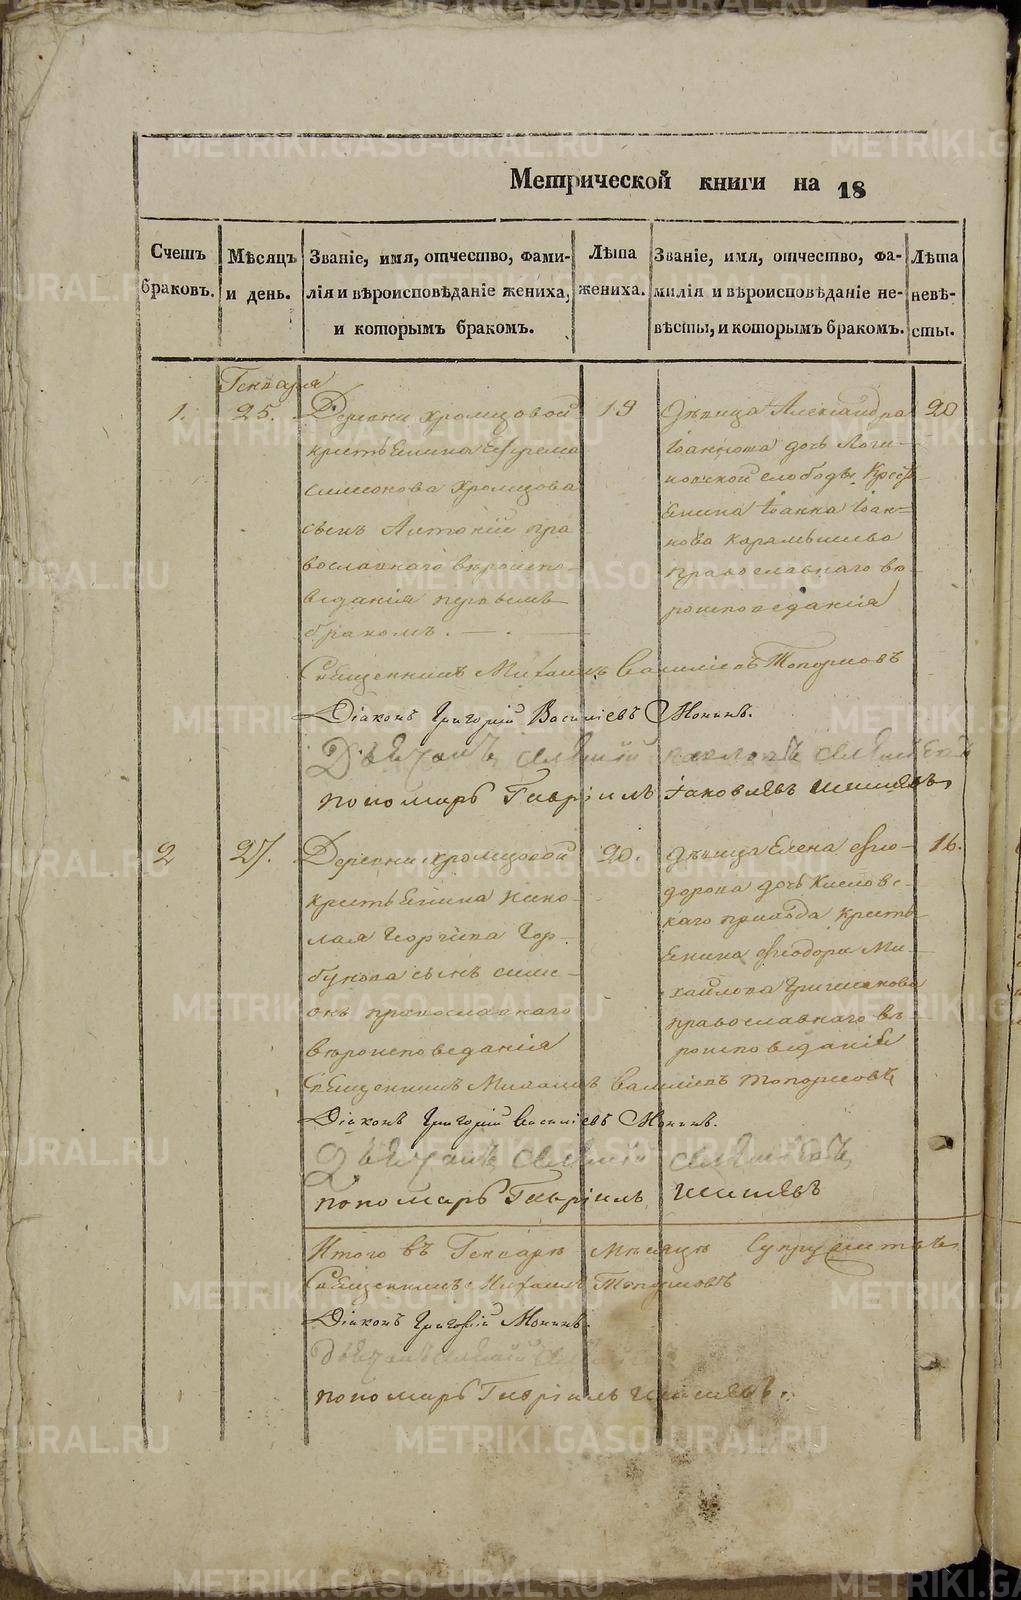 Метрической книги на 18
Счетъ браковъ.
Мѣсяцъ и день.
Званіе, имя, отчество, фами-
лія и вѣроисповѣданіе жениха,
и которымъ бракомъ.
Лѣта
жениха.
Званіе, имя, отчество, фа-
милія и вѣроисповѣданіе не-
вѣсты, и которымъ бракомъ.
Лѣта
невѣ-
сты.
Генваря
1.
25.
Деревни Хромцовой
крестьянина Ефрема
Симеонова Хромцова
сынъ Антоній пра
вославнаго вѣроиспо-
веданія первымъ
бракомъ.
19
Дѣвица Александра
Іоаннова дочь Логи-
новской слободы Кресть-
янина Іоанна Іоан-
нова Карамышева
православнаго вѣ-
роисповеданія
20
Священникъ Михаилъ Василіевъ Топорковъ
Діаконъ Григорій Василіевъ Монинъ.
Дьячокъ
пономарь Гавріилъ Іаковлевъ Шишевъ
2
27.
Деревни Хромцовой
крестьянина Нико-
лая Георгіева Гор-
бунова сынъ Симе-
онъ православнаго
вѣроисповеданія
20.
Дѣвица Елена Ѳео-
дорова дочь Кисловс-
каго прихода кресть-
янина Ѳеодора Ми-
хайлова Григшанова
православнаго вѣ-
роисповеданія
16.
Священникъ Михаилъ Василіевъ Топорковъ
Діаконъ Григорій Василіевъ Монинъ.
Дьячокъ
пономарь Гавріилъ Шишевъ
Итого въ Генварѣ Мѣсяцѣ
Священникъ Михаилъ Топорковъ
Діаконъ Григорій Монинъ
пономарь Гавріилъ Шишевъ.
METRIKI.GASO-URAL.RU